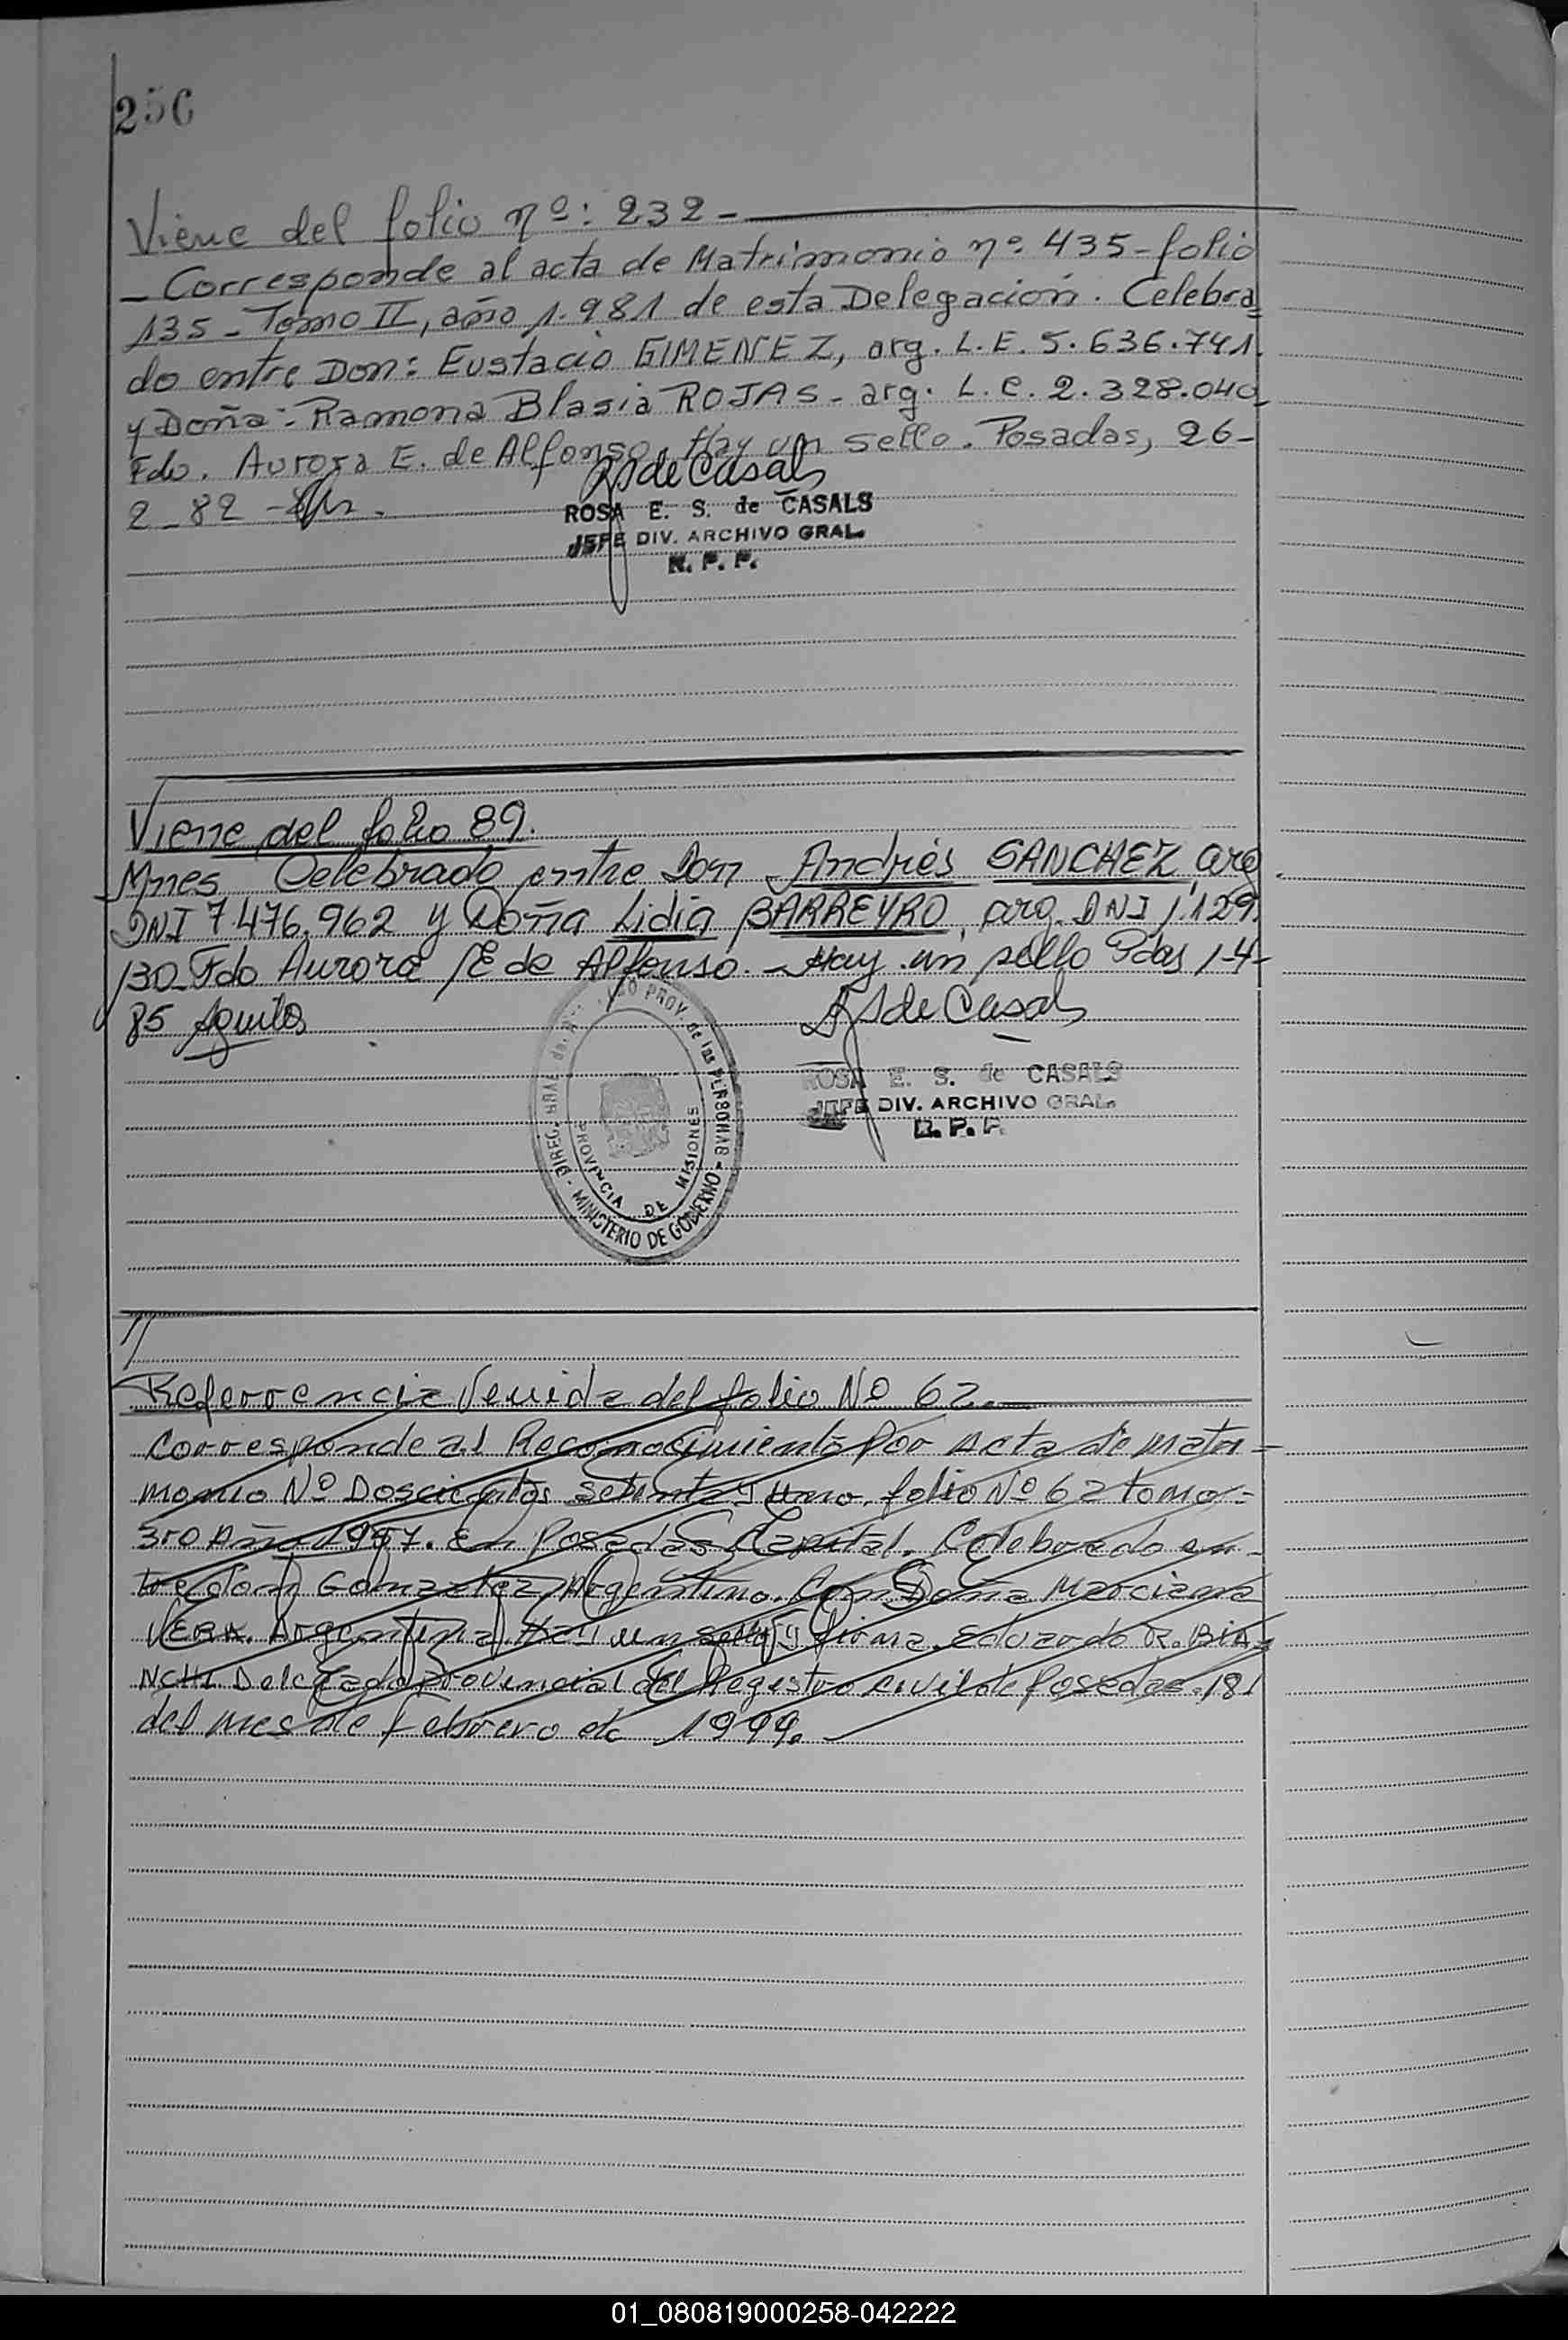 256
Viene del folio nº: 232 -
- Corresponde al acta de Matrimonio nº 435 - folio
135 - Tomo II, año 1.981 de esta Delegación. Celebra
do entre Don: Eustacio GIMENEZ, arg. L.E. 5.636.741.
y Doña: Ramona Blasia ROJAS - arg. L.C. 2.328.040
Fdo. Aurora E. de Alfonso. Hay un sello. Posadas, 26 -
2 - 82 -
RSde Casals
ROSA E. S. de CASALS
JEFE DIV. ARCHIVO GRAL.
R. P. P.
Viene del folio 89.
Mnes Celebrado entre Don Andrés SANCHEZ, arg
DNI 7.476.962 y Doña Lidia BARREYRO, arg. DNI 1.129.
130 - Fdo Aurora E de Alfonso. - Hay un sello Pdas 1-4-
85
RSde Casals
ROSA E. S. de CASALS
JEFE DIV. ARCHIVO GRAL.
R. P. P.
PROV. de las PERSONAS - MINISTERIO DE GOBIERNO -
PROVINCIA DE MISIONES
Referrencia Venida del folio Nº 62.
Corresponde al Reconocimiento Por Acta de Matri
monio Nº Doscientos Setenta y Uno. folio Nº 62 tomo
3ro Año 1957. En Posadas Capital. Celebrado en
tre don Gonzalez, Argentino. Con Doña Marciana
VERA. Argentina Hay un sello y firma. Eduardo R. BIA
NCHI. Delegado provincial del Registro civil de Posadas. 18
del mes de Febrero de 1999.
01_080819000258-042222